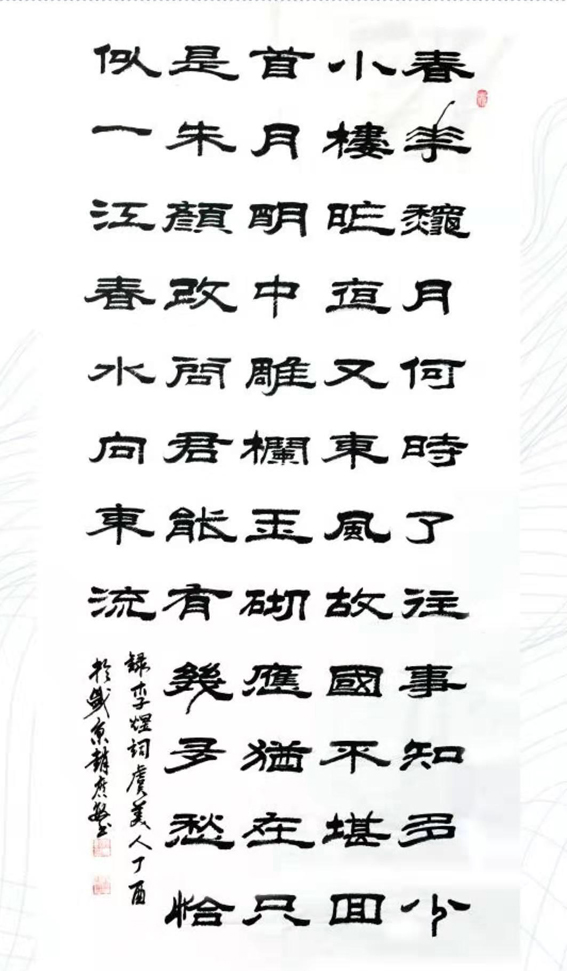 春華龝月何時了往事知多少
小樓昨夜又東風故國不堪回
首月明中雕欄玉砌應猶在只
是朱顏改問君能有幾多愁恰
似一江春水向東流
錄李煜詞虞美人丁酉
於盛京趙彥書